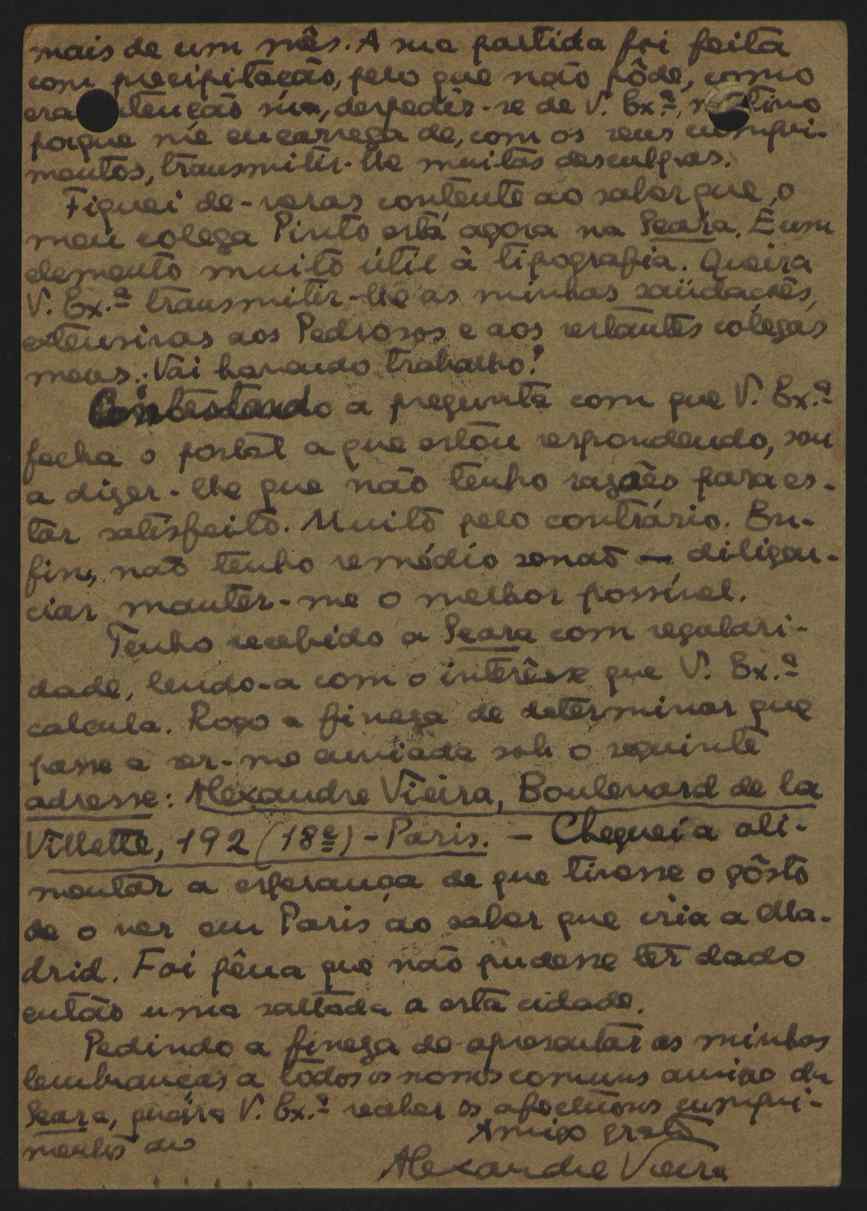 mais de um mês. A sua partida foi feita
com precipitação, pelo que não pôde, como
era tenção sua, despedir-se de V. Ex.ª, motivo
porque me encarrega de, com os seus cumpri-
mentos, transmitir-lhe muitas desculpas.
Fiquei de-veras contente ao saber que o
meu colega Pinto está agora na Seara. É um
elemento muito útil à tipografia. Queira
V. Ex.ª transmitir-lhe as minhas saüdações,
extensivas aos Pedrosos e aos restantes colegas
meus. Vai havendo trabalho?
Contestando a pregunta com que V. Ex.ª
fecha o postal a que estou respondendo, sou
a dizer-lhe que não tenho razões para es-
tar satisfeito. Muito pelo contrário. En-
fim, não tenho remédio senão — diligen-
ciar manter-me o melhor possível.
Tenho recebido a Seara com regulari-
dade, lendo-a com o interêsse que V. Ex.ª
calcula. Rogo a fineza de determinar que
passe a ser-me enviada sob o seguinte
adresse: Alexandre Vieira, Boulevard de la
Villette, 192 (18e) - Paris. — Cheguei a ali-
mentar a esperança de que tivesse o gôsto
de o ver em Paris ao saber que iria a Ma-
drid. Foi pêna que não pudesse ter dado
então uma saltada a esta cidade.
Pedindo a fineza de apresentar as minhas
lembranças a todos os nossos comuns amigos da
Seara, queira V. Ex.ª receber os afectuosos cumpri-
mentos do
Amigo grato
Alexandre Vieira